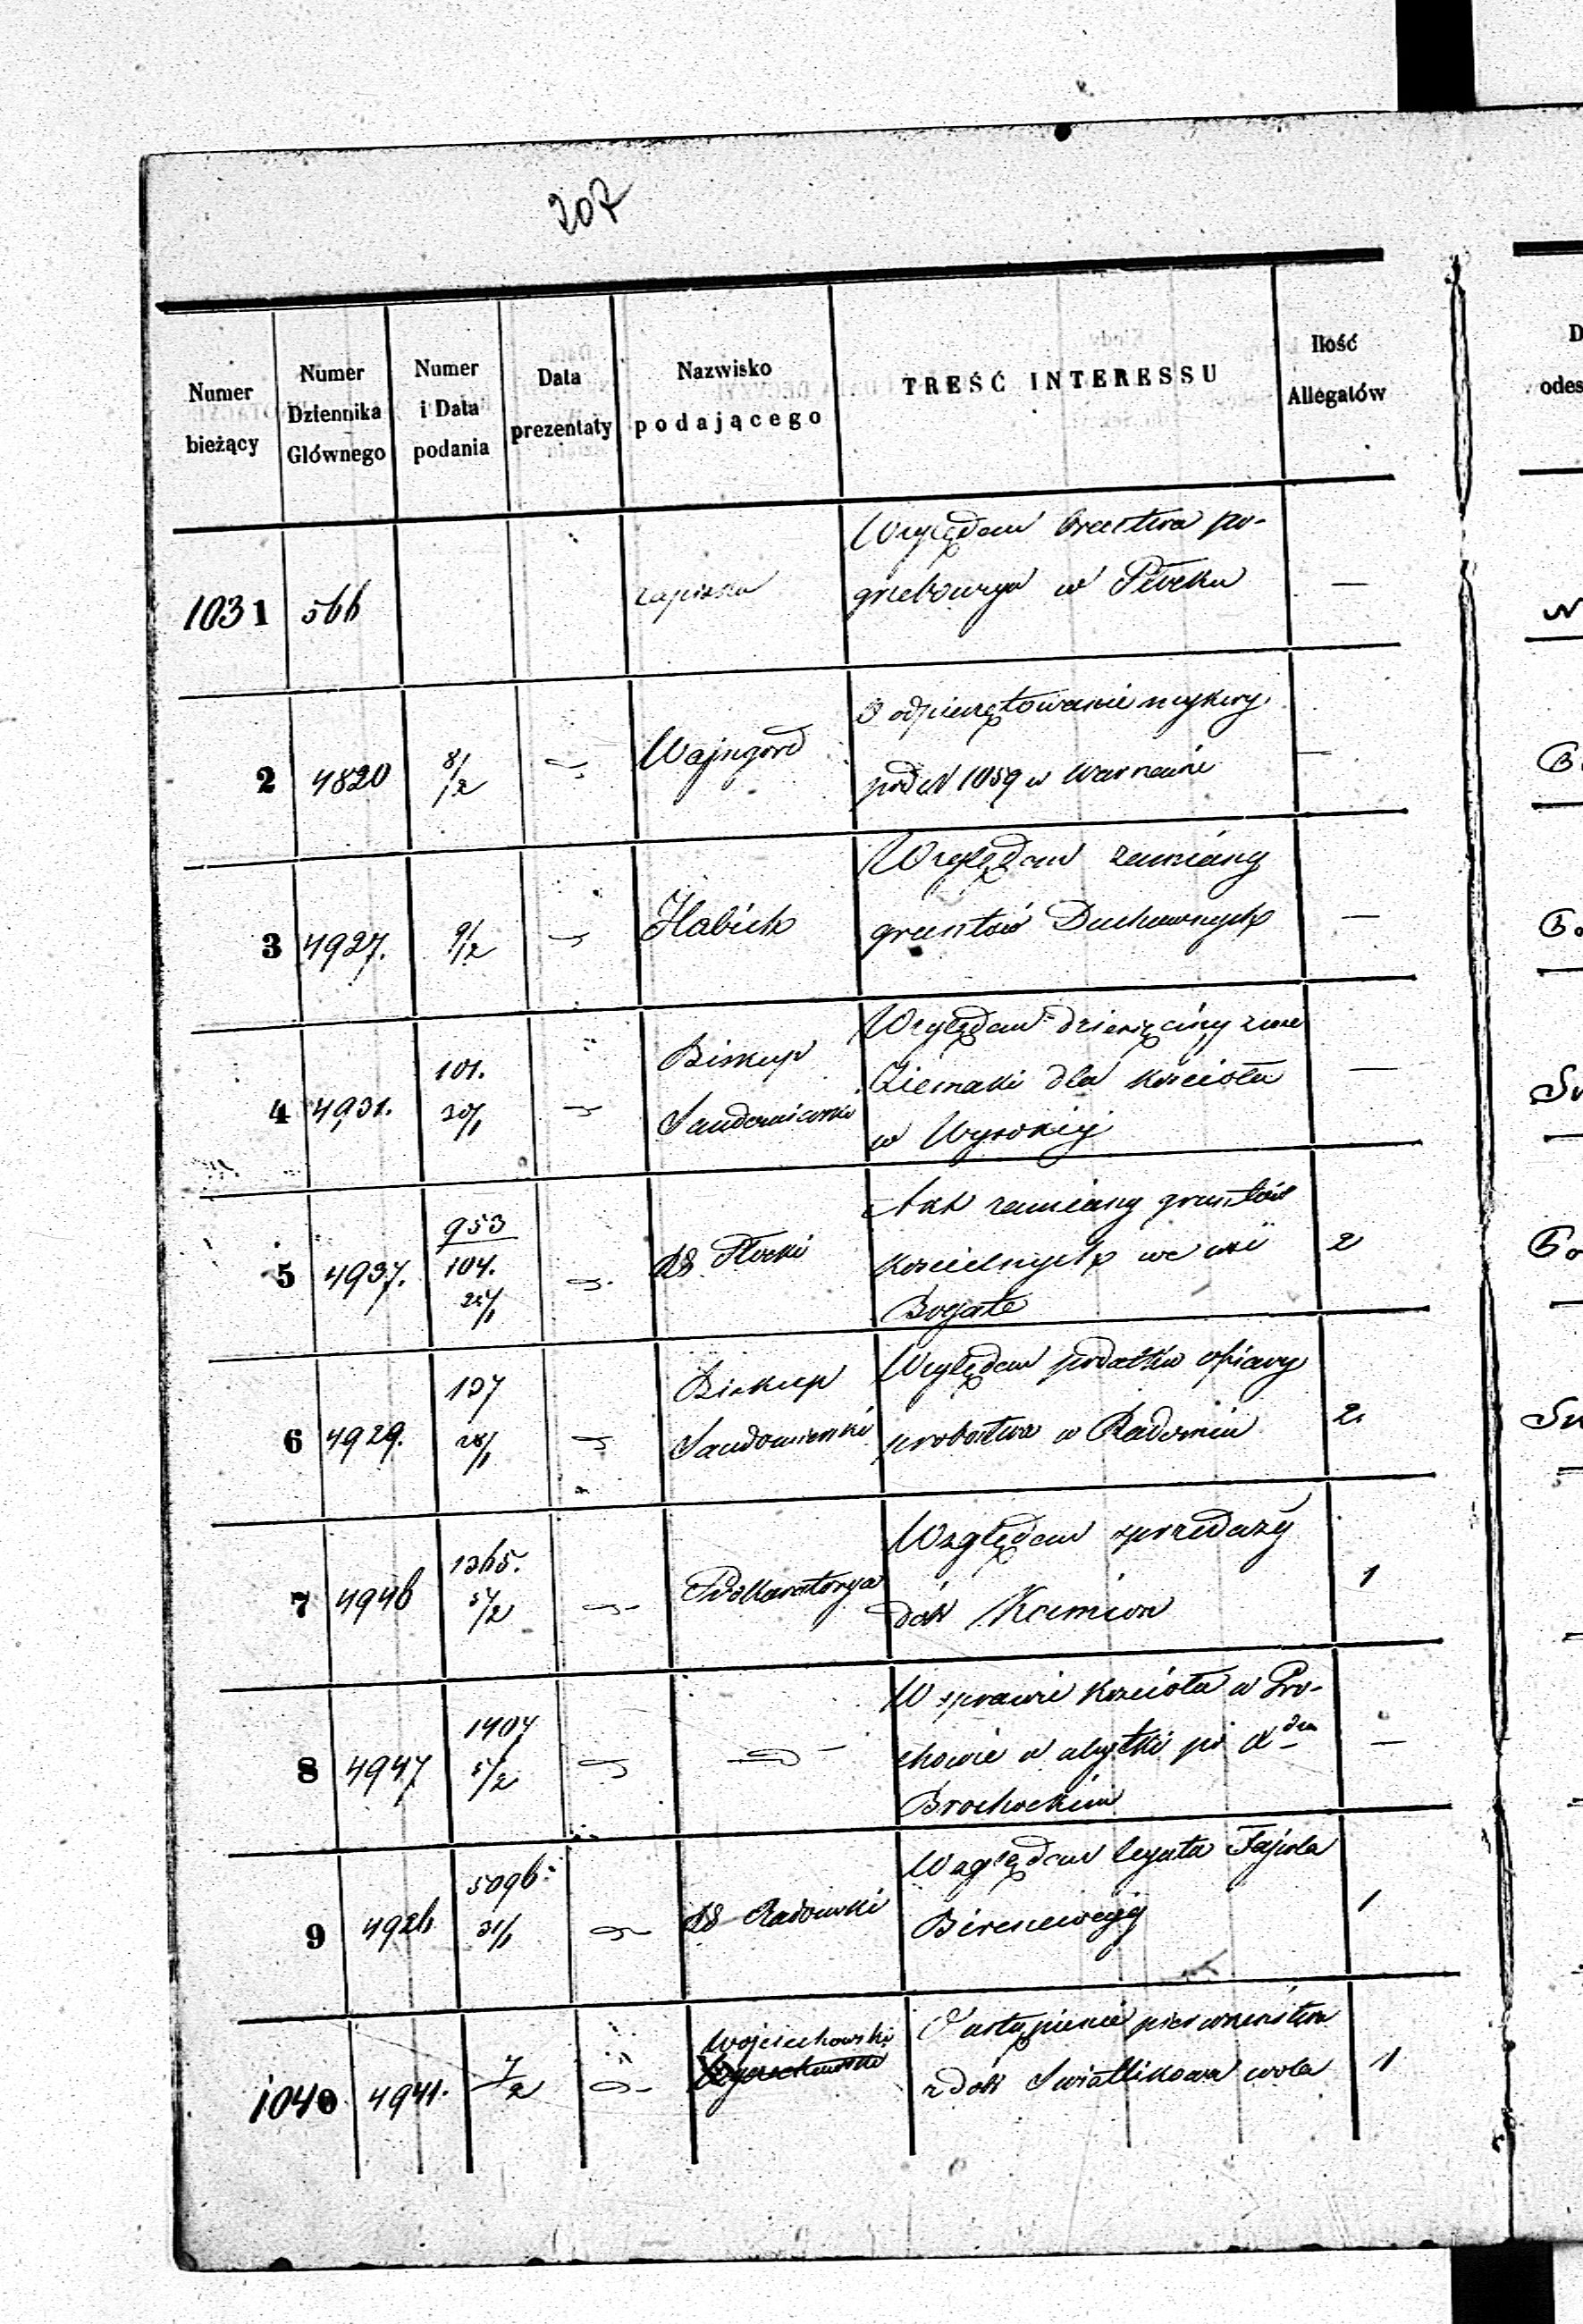 207
Numer bieżący
Numer Dziennika Głównego
Numer i Data podania
Data prezentaty
Nazwisko podającego
TREŚĆ INTERESSU
Ilość Allegatów
D
odes
1031 566 zapiska
Względem bractwa po-
grzebowego w —
2 4820 8/2 Wajngord
O odpieczętowanie mykwy
pod N 1059 w Warszawie —
3 4927. 9/2 Habich
Względem zamiany
gruntów Duchownych —
4 4931. 101. 30/1 Biskup Sandomierski
Względem dziesięciny z wsi
Ziemaki dla kościoła
w Wysokiej —
5 4937. 953 104. 25/1 RG Płocki
Akt zamiany gruntów
kościelnych we wsi
Bogate 2
6 4929. 137 28/1 Biskup Sandomierski
Względem podatku ofiary
probostwa w Radomiu 2.
7 4946 1365. 5/2 Prokuratorya
Względem sprzedaży
dóbr Kamion 1
8 4947 1404 5/2
W sprawie kościoła w Pro-
chowie w
Brochockim —
9 4926 5096 31/1 RG Radomski
Względem legatu Fajwla
1
1040 4941. 7/2 Wojciechowski
O ustąpienie pierwszeństwa
z dóbr Swiatlikowa wola 1